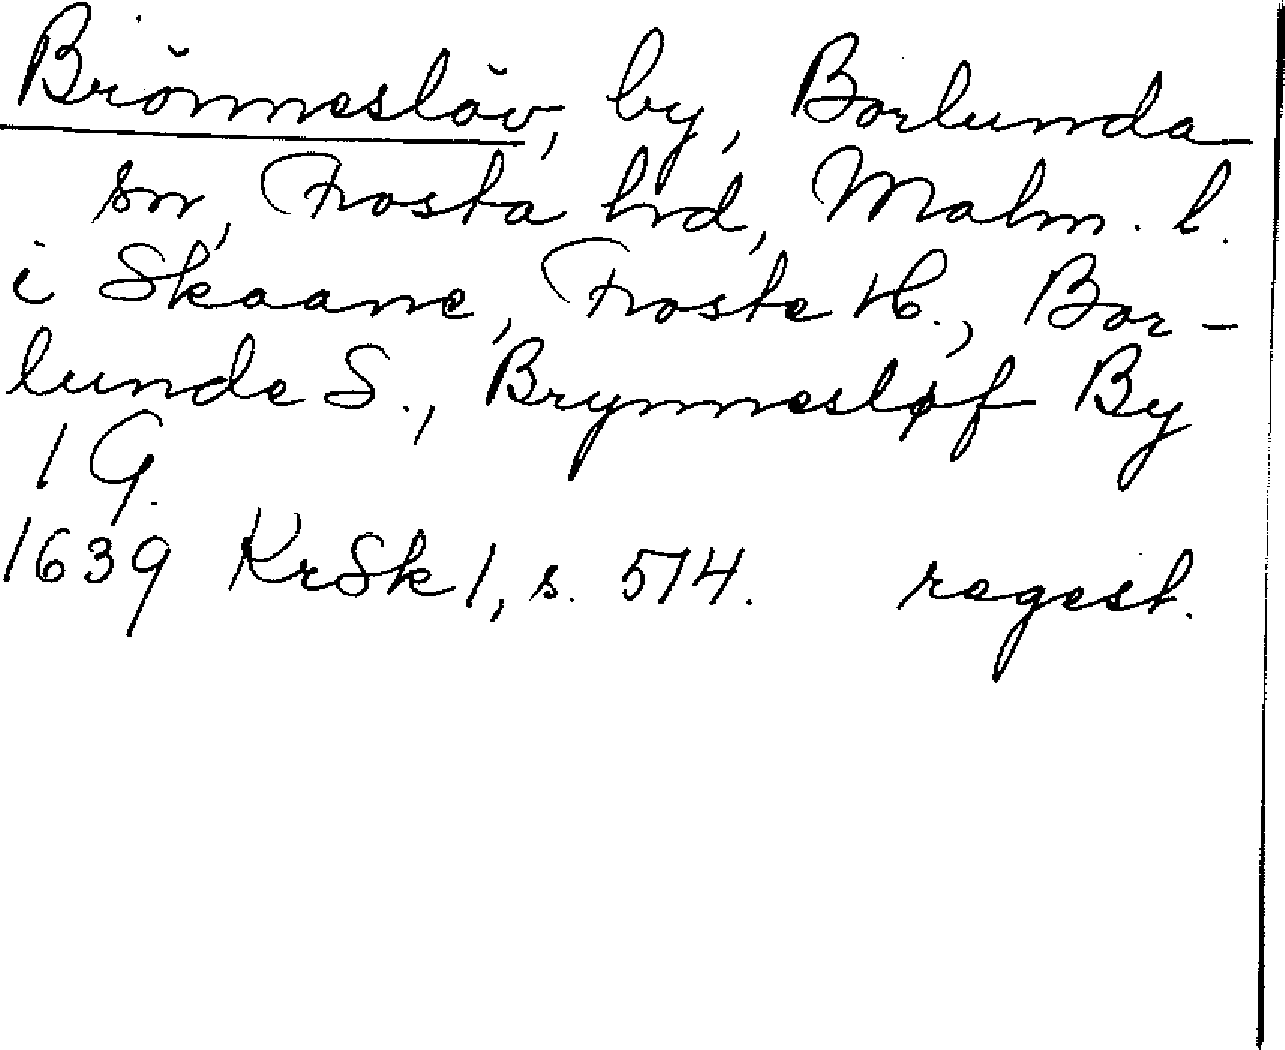 Brönneslöv, by, Borlunda
sn, Frosta hrd, Malm. l.
i Skaane, Froste H., Bor-
lunde S., Brynnesløf By
1 G.
1639 KrSk 1, s. 574. regest.